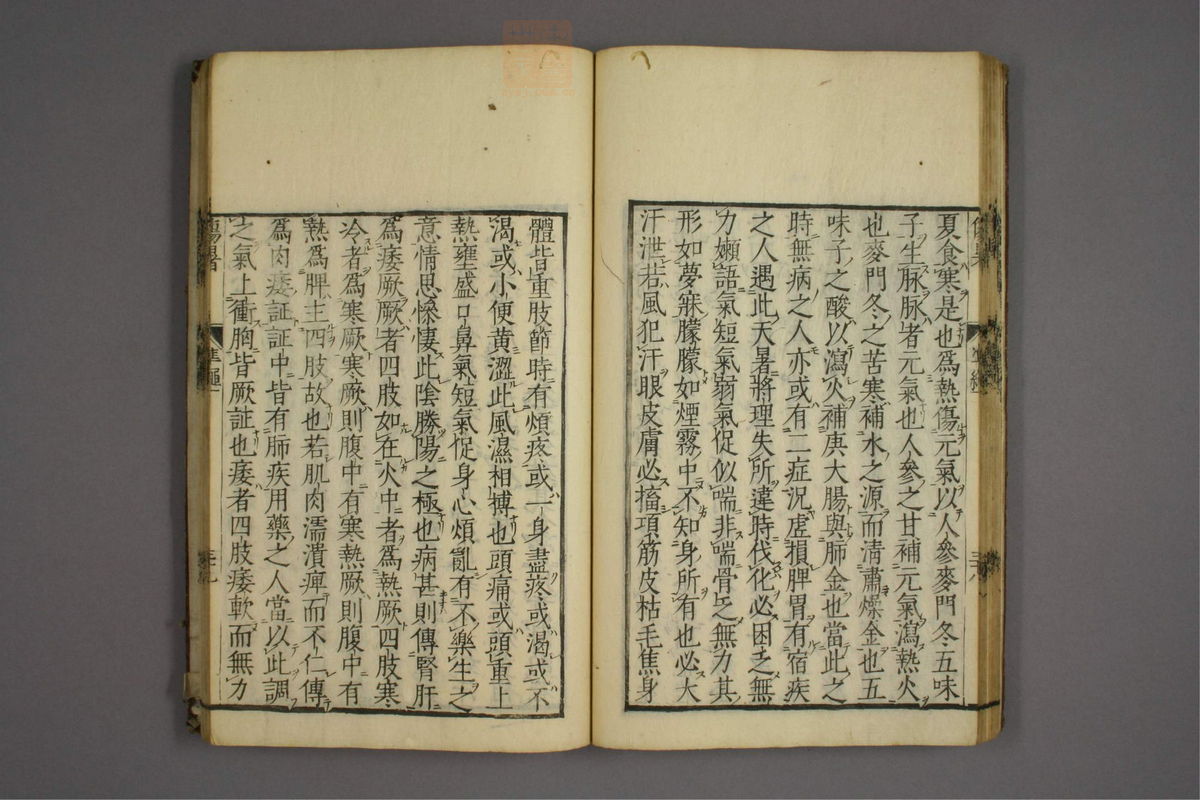 夏食寒是也爲熱傷元氣以人參麥門冬五味
子生脉脉者元氣也人參之甘補元氣瀉熱火
也麥門冬之苦寒補水之源而清肅燥金也五
味子之酸以瀉火補庚大腸與肺金也當此之
時無病之人亦或有二症況虛損脾胃有宿疾
之人遇此天暑將理失所違時伐化必困乏無
力嬾語氣短氣弱氣促似喘非喘骨乏無力其
形如夢寐朦朦如煙霧中不知身所有也必大
汗泄若風犯汗眼皮膚必搐項筋皮枯毛焦身
體皆重肢節時有煩疼或一身盡疼或渴或不
渴或小便黄澀此風濕相搏也頭痛或頭重上
熱壅盛口鼻氣短氣促身心煩亂有不樂生之
意情思慘悽此陰勝陽之極也病甚則傳腎肝
爲痿厥厥者四肢如在火中者爲熱厥四肢寒
冷者爲寒厥寒厥則腹中有寒熱厥則腹中有
熱爲脾主四肢故也若肌肉濡潰痺而不仁傳
爲肉痿証証中皆有肺疾用藥之人當以此調
之氣上衝胸皆厥証也痿者四肢痿軟而無力
傷暑
準繩
三十九